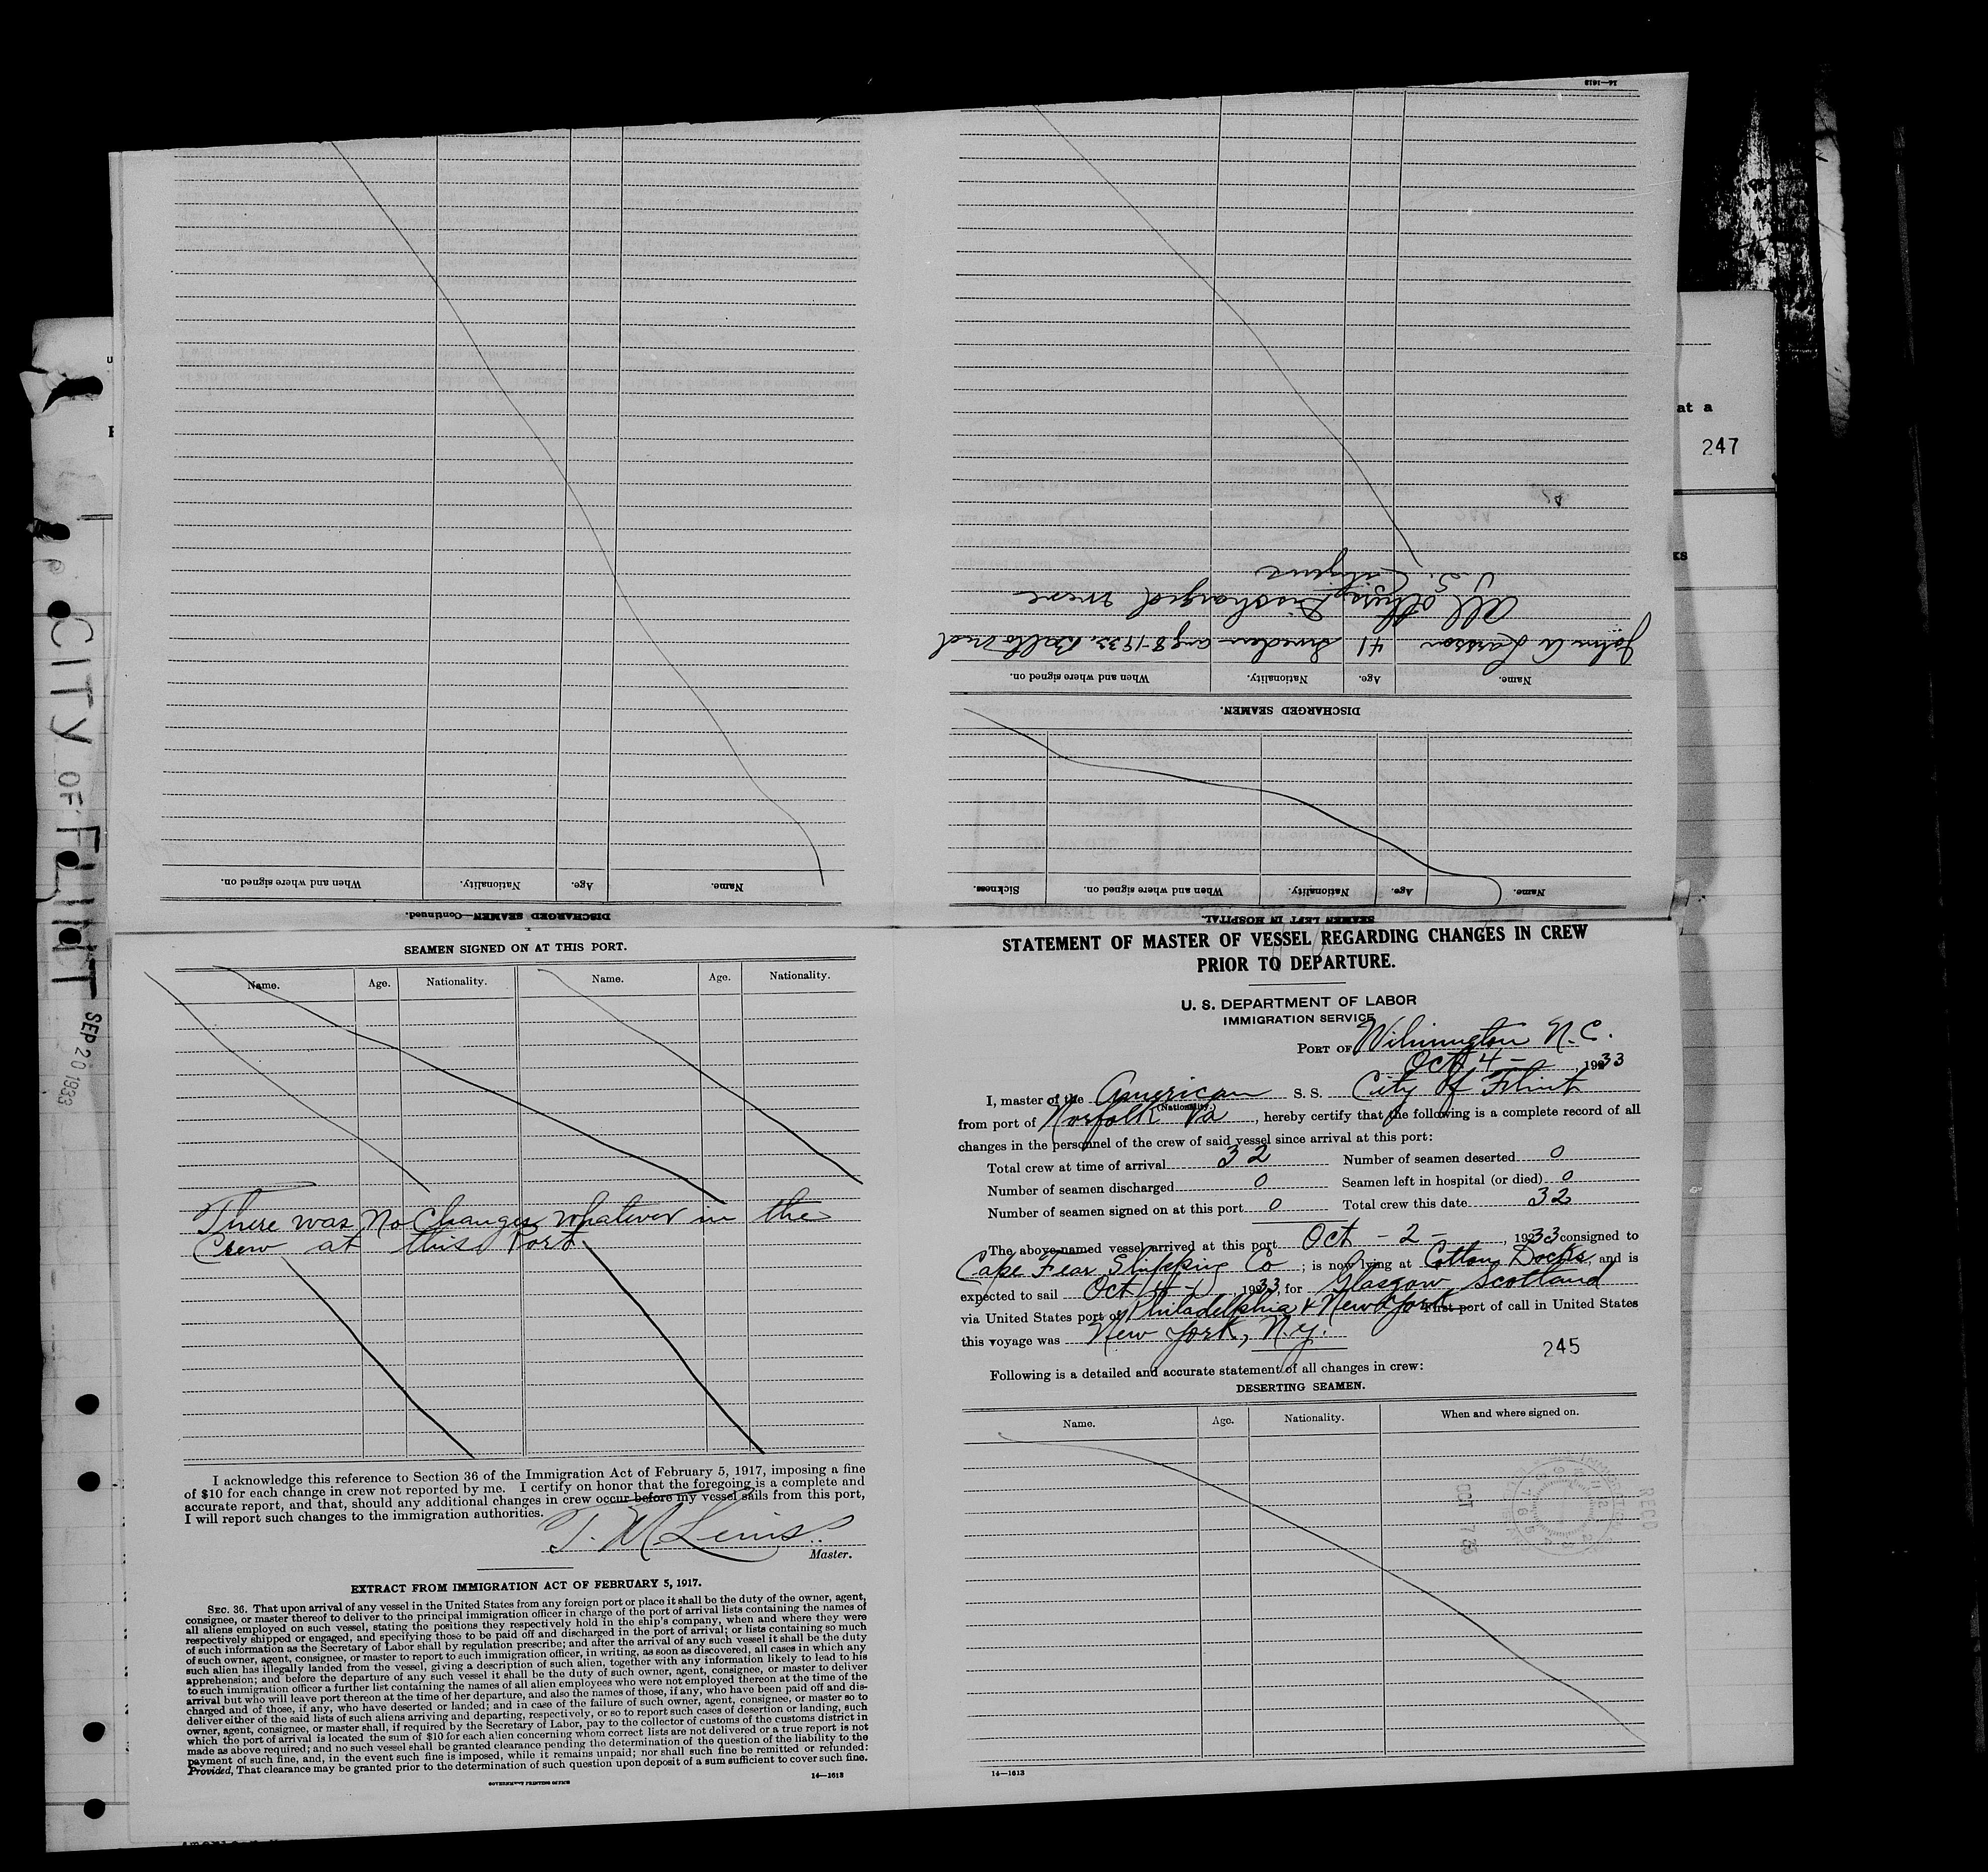 14—1613
John A Larsson 41 Sweden Aug 8-1933. Balto Md
All others Discharged were
U.S. Citizens
Name. Age. Nationality. When and where signed on.
DISCHARGED SEAMEN.
Name. Age. Nationality. When and where signed on. Sickness.
SEAMEN LEFT IN HOSPITAL.
Name. Age. Nationality. When and where signed on.
DISCHARGED SEAMEN—Continued.
at a
247
KS
CITY OF FLINT SEP 20 1933
SEAMEN SIGNED ON AT THIS PORT.
Name. Age. Nationality. Name. Age. Nationality.
There was No Changes whatever in the
Crew at this Port.
I acknowledge this reference to Section 36 of the Immigration Act of February 5, 1917, imposing a fine
of $10 for each change in crew not reported by me. I certify on honor that the foregoing is a complete and
accurate report, and that, should any additional changes in crew occur before my vessel sails from this port,
I will report such changes to the immigration authorities.
T. M. Lewis
Master.
EXTRACT FROM IMMIGRATION ACT OF FEBRUARY 5, 1917.
SEC. 36. That upon arrival of any vessel in the United States from any foreign port or place it shall be the duty of the owner, agent,
consignee, or master thereof to deliver to the principal immigration officer in charge of the port of arrival lists containing the names of
all aliens employed on such vessel, stating the positions they respectively hold in the ship's company, when and where they were
respectively shipped or engaged, and specifying those to be paid off and discharged in the port of arrival; or lists containing so much
of such information as the Secretary of Labor shall by regulation prescribe; and after the arrival of any such vessel it shall be the duty
of such owner, agent, consignee, or master to report to such immigration officer, in writing, as soon as discovered, all cases in which any
such alien has illegally landed from the vessel, giving a description of such alien, together with any information likely to lead to his
apprehension; and before the departure of any such vessel it shall be the duty of such owner, agent, consignee, or master to deliver
to such immigration officer a further list containing the names of all alien employees who were not employed thereon at the time of the
arrival but who will leave port thereon at the time of her departure, and also the names of those, if any, who have been paid off and dis-
charged and of those, if any, who have deserted or landed; and in case of the failure of such owner, agent, consignee, or master so to
deliver either of the said lists of such aliens arriving and departing, respectively, or so to report such cases of desertion or landing, such
owner, agent, consignee, or master shall, if required by the Secretary of Labor, pay to the collector of customs of the customs district in
which the port of arrival is located the sum of $10 for each alien concerning whom correct lists are not delivered or a true report is not
made as above required; and no such vessel shall be granted clearance pending the determination of the question of the liability to the
payment of such fine, and, in the event such fine is imposed, while it remains unpaid; nor shall such fine be remitted or refunded:
Provided, That clearance may be granted prior to the determination of such question upon deposit of a sum sufficient to cover such fine.
GOVERNMENT PRINTING OFFICE 14—1613
STATEMENT OF MASTER OF VESSEL REGARDING CHANGES IN CREW
PRIOR TO DEPARTURE.
U. S. DEPARTMENT OF LABOR
IMMIGRATION SERVICE
PORT OF Wilmington N.C.
Oct 4 — , 1933
I, master of the American S. S. City of Flint
(Nationality.)
from port of Norfolk Va , hereby certify that the following is a complete record of all
changes in the personnel of the crew of said vessel since arrival at this port:
Total crew at time of arrival 32 Number of seamen deserted 0
Number of seamen discharged 0 Seamen left in hospital (or died) 0
Number of seamen signed on at this port 0 Total crew this date 32
The above-named vessel arrived at this port Oct - 2 - , 1933 consigned to
Cape Fear Shipping Co ; is now lying at Cotton Docks, and is
expected to sail Oct 4 - , 1933, for Glasgow Scotland
via United States port of Philadelphia & New York First port of call in United States
this voyage was New York, N.y.
245
Following is a detailed and accurate statement of all changes in crew:
DESERTING SEAMEN.
Name. Age. Nationality. When and where signed on.
REC'D
OCT 7 33
IMMIGRATION
14—1613